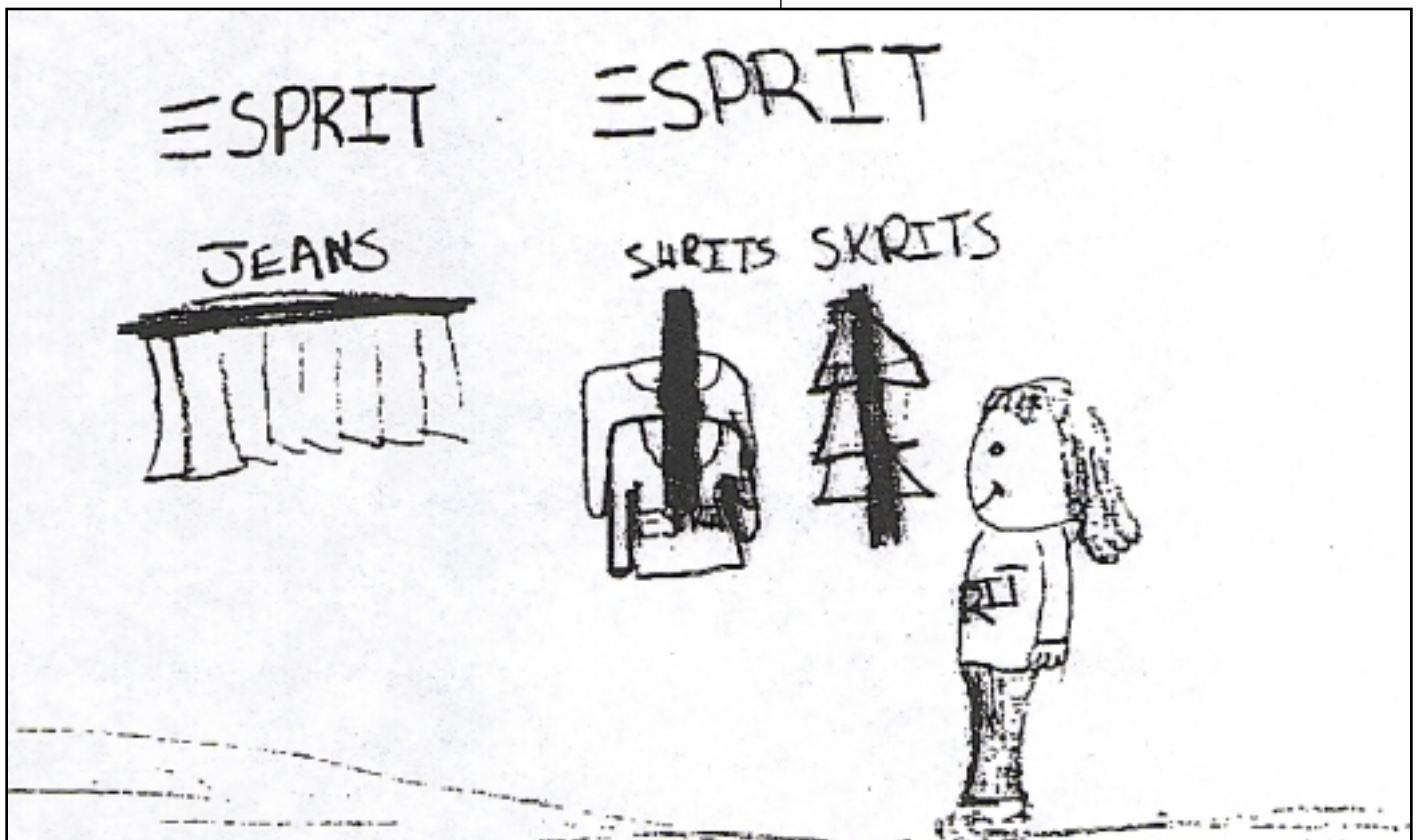 ESPRIT ESPRIT
JEANS SHRITS SKRITS
RIT